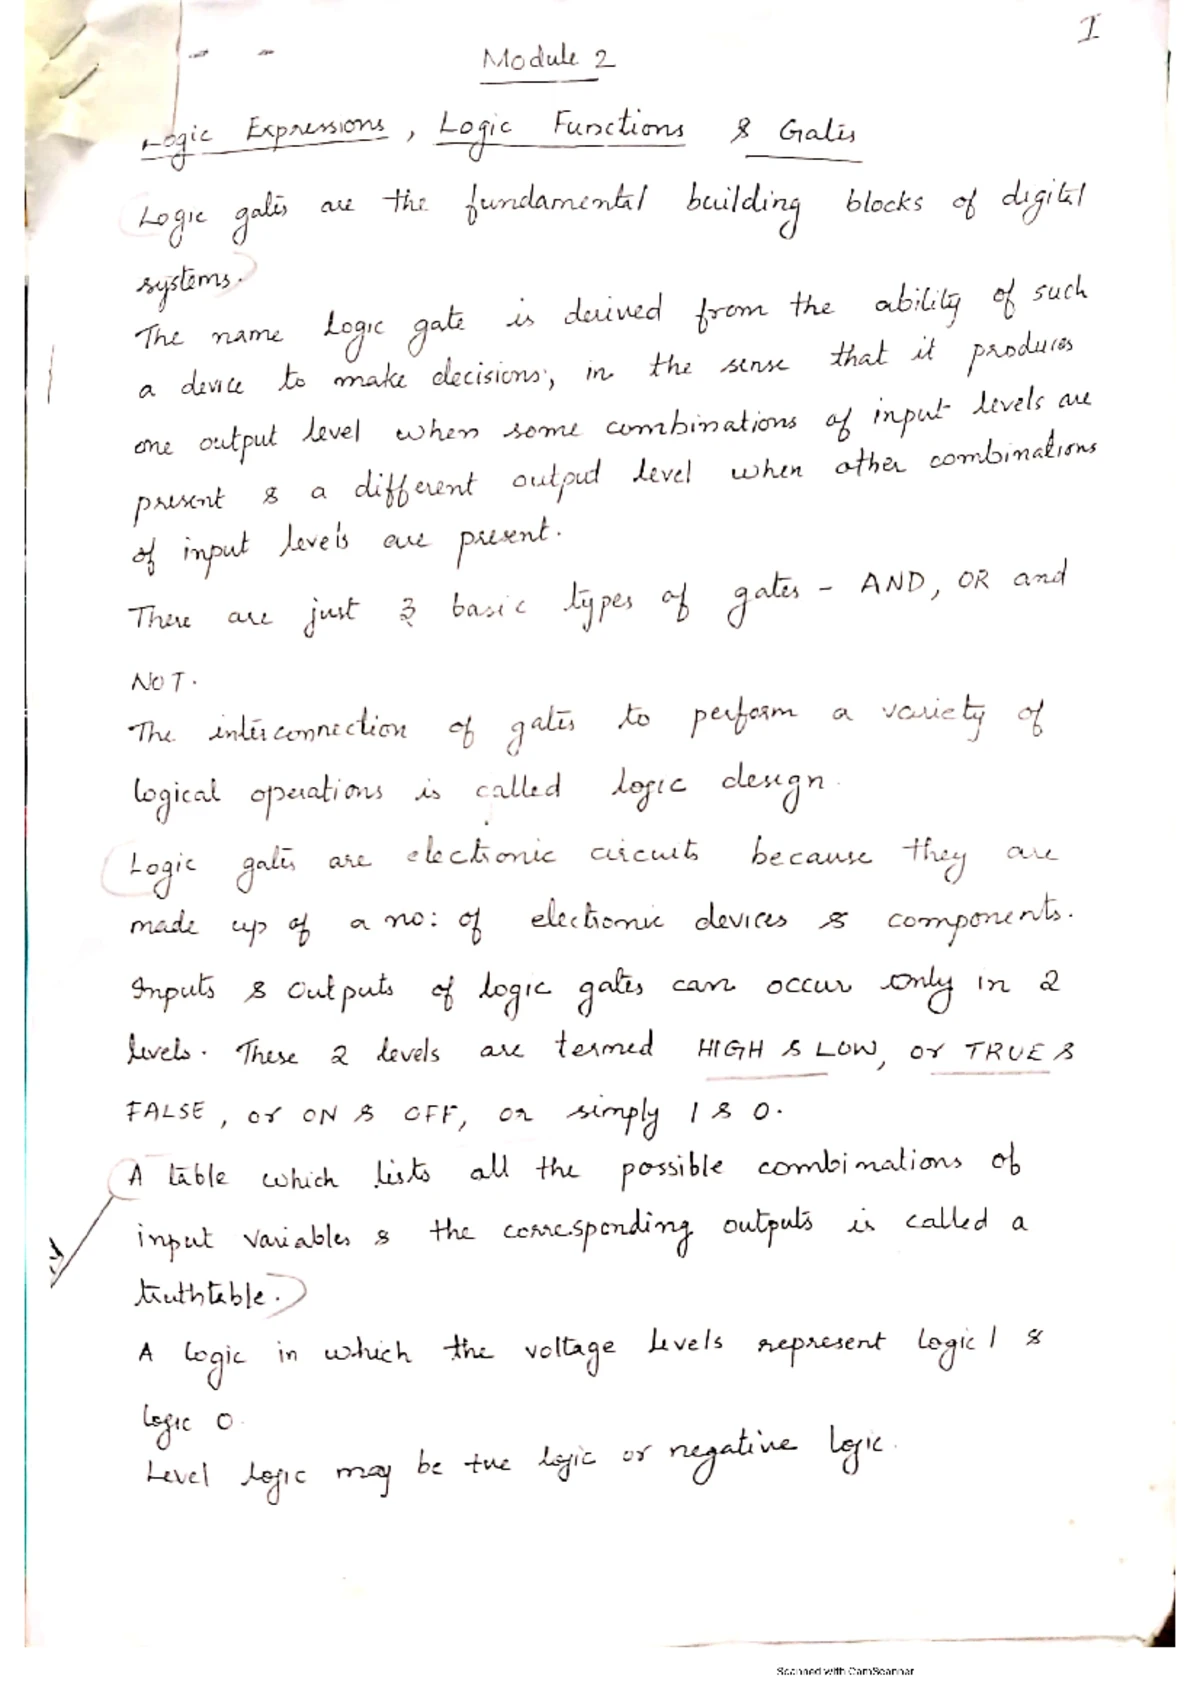 1
Module 2
Logic Expressions, Logic Functions & Gates
Logic gates are the fundamental building blocks of digital
systems.
The name logic gate is derived from the ability of such
a device to make decisions, in the sense that it produces
one output level when some combinations of input levels are
present & a different output level when other combinations
of input levels are present.
There are just 3 basic types of gates - AND, OR and
NOT.
The interconnection of gates to perform a variety of
logical operations is called logic design.
Logic gates are electronic circuits because they are
made up of a no: of electronic devices & components.
Inputs & outputs of logic gates can occur only in 2
levels. These 2 levels are termed HIGH & LOW, or TRUE &
FALSE, or ON & OFF, or simply 1 & 0.
A table which lists all the possible combinations of
input variables & the corresponding outputs is called a
truthtable.
A logic in which the voltage levels represent logic 1 &
logic 0.
Level logic may be +ve logic or negative logic.
Scanned with CamScanner